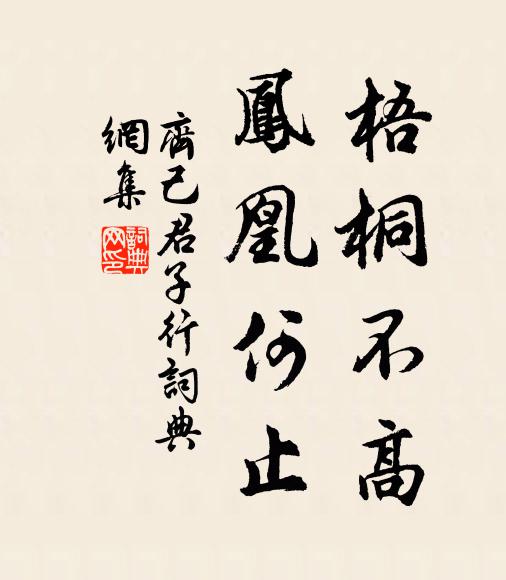 梧桐不高
鳳凰何止
齊己君子行詞典
網集
詞典
网印